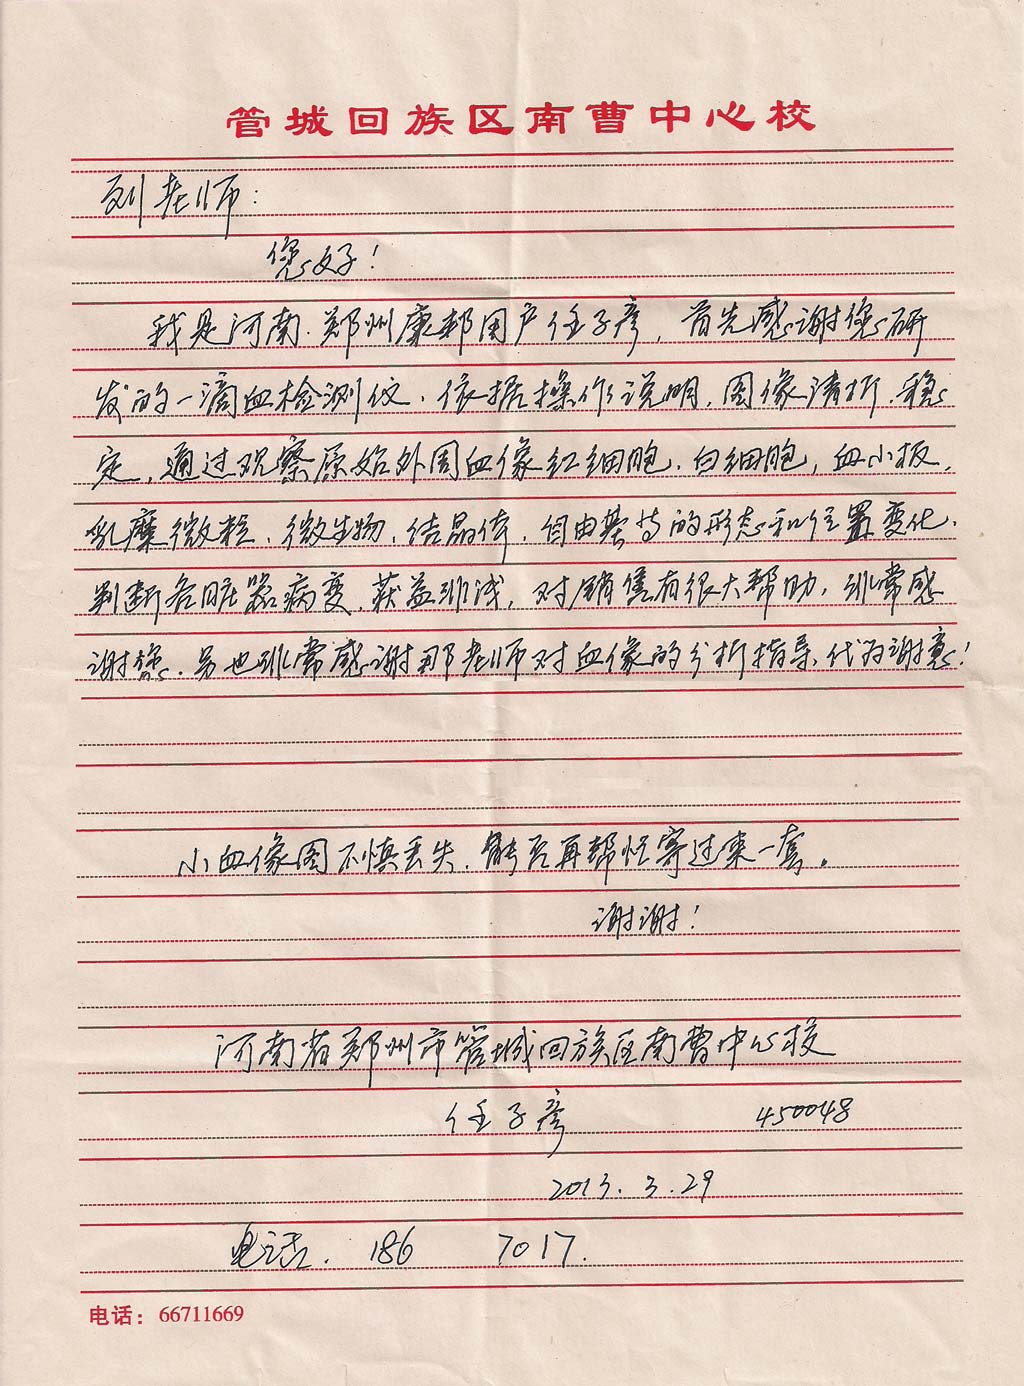 管城回族区南曹中心校
刘老师：
您好！
我是河南.郑州康邦用户任子彦，首先感谢您研
发的一滴血检测仪、依据操作说明，图像清析.稳
定，通过观察原始外周血像红细胞、白细胞，血小板，
乳糜微粒、微生物、结晶体，自由基等的形态和位置变化、
判断各脏器病变，获益非浅，对销售有很大帮助，非常感
谢您、另也非常感谢那老师对血像的分析指导、代为谢意！
小血像图不慎丢失，能否再帮忙寄过来一套。
谢谢！
河南省郑州市管城回族区南曹中心校
任子彦 450048
2013.3.29
电话. 186 7017.
电话：66711669